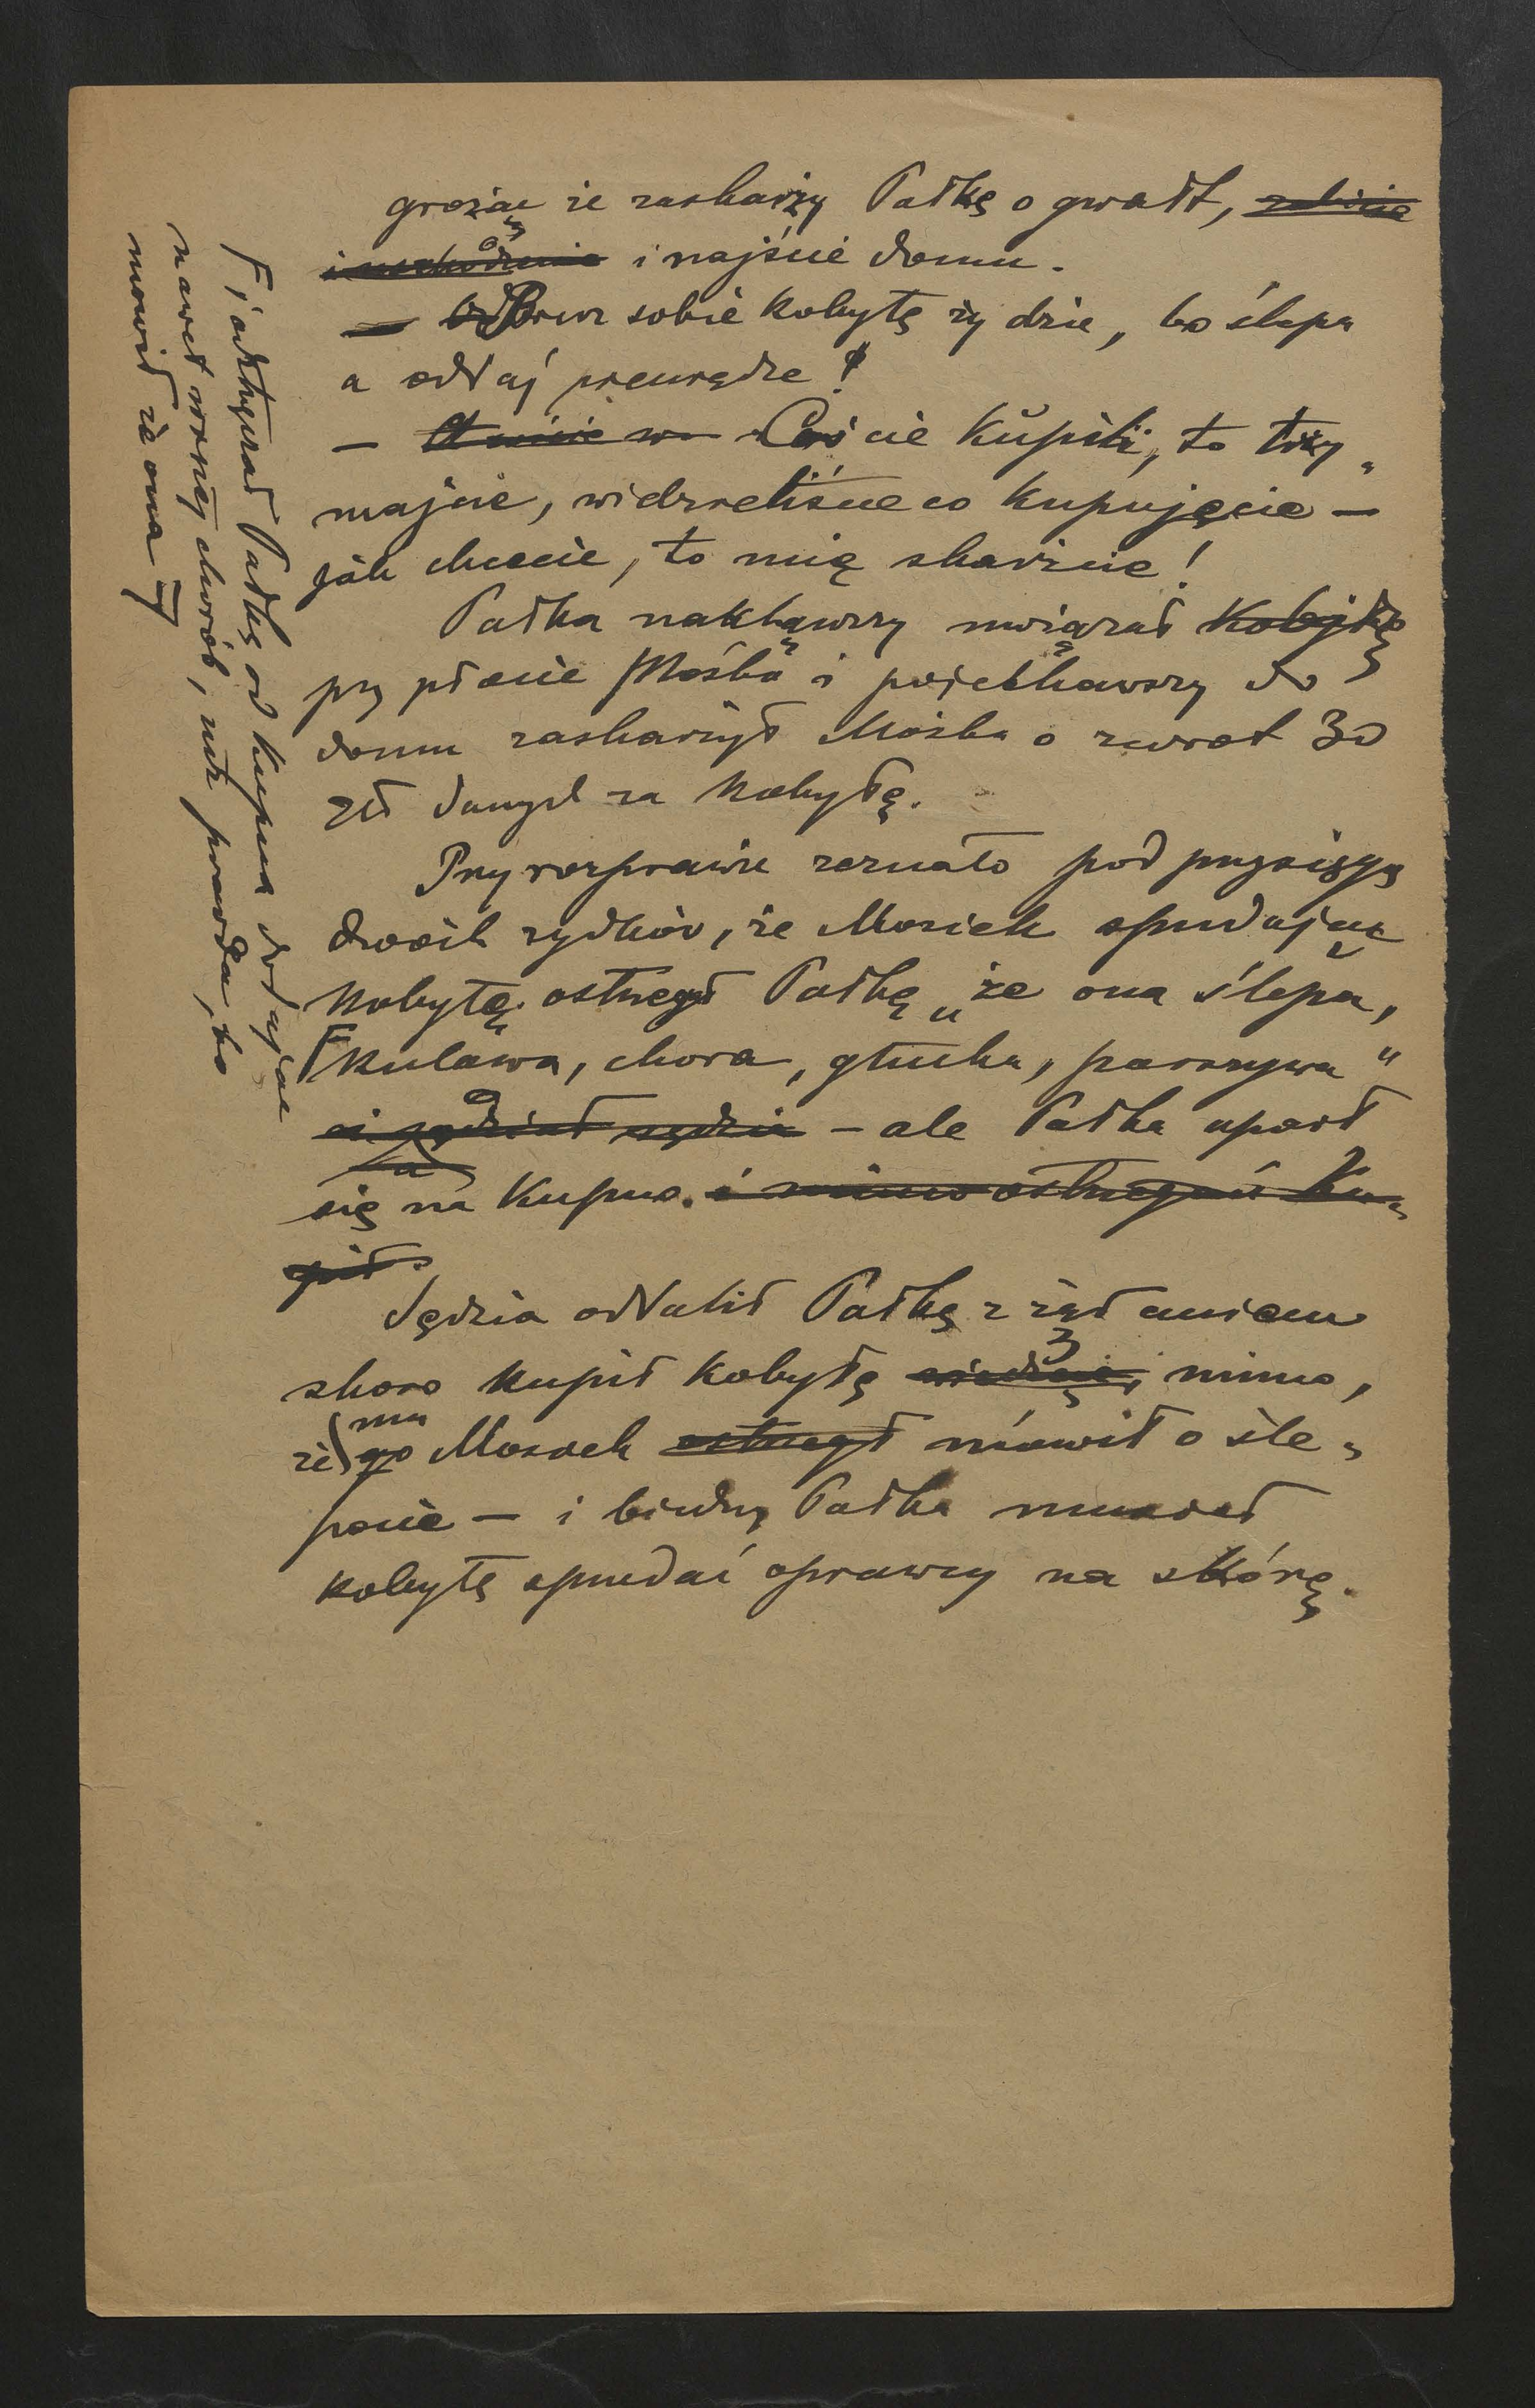 grożąc że zaskarży Pałkę o gwałt, zabicie
i uszkodzenie i najście domu.
— Bierz sobie kobyłę żydzie, bo ślepa
a oddaj pieniądze!
— Coście kupili, to trzy„
majcie, widzieliście co kupujęcie —
jak chcecie, to mię skarżcie!
Pałka nakląwszy uwiązał kobyłkę
przy płocie Mośka i pojechawszy do
domu zaskarżył Mośka o zwrot 30
zł danych za kobyłę.
Przy rozprawie zeznało pod przysięgą
dwóch żydków, że Mosiek sprzedając
kobyłę ostrzegał Pałkę „że ona ślepa,
kulawa, chora, głucha, parszywa"
sędzia — ale Pałka uparł
się na kupno. i mimo ostrzegań ku„
pił.
Sędzia oddalił Pałkę z żądaniem
skoro kupił kobyłę mimo,
że mu go Mosiek ostrzegł mówił o śle„
pocie — i biedny Pałka musiał
kobyłę sprzedać oprawcy na skórę.
i odstręczał Pałkę od kupna dodając
nawet więcej chorób, niż prawda, bo
mówił że ona